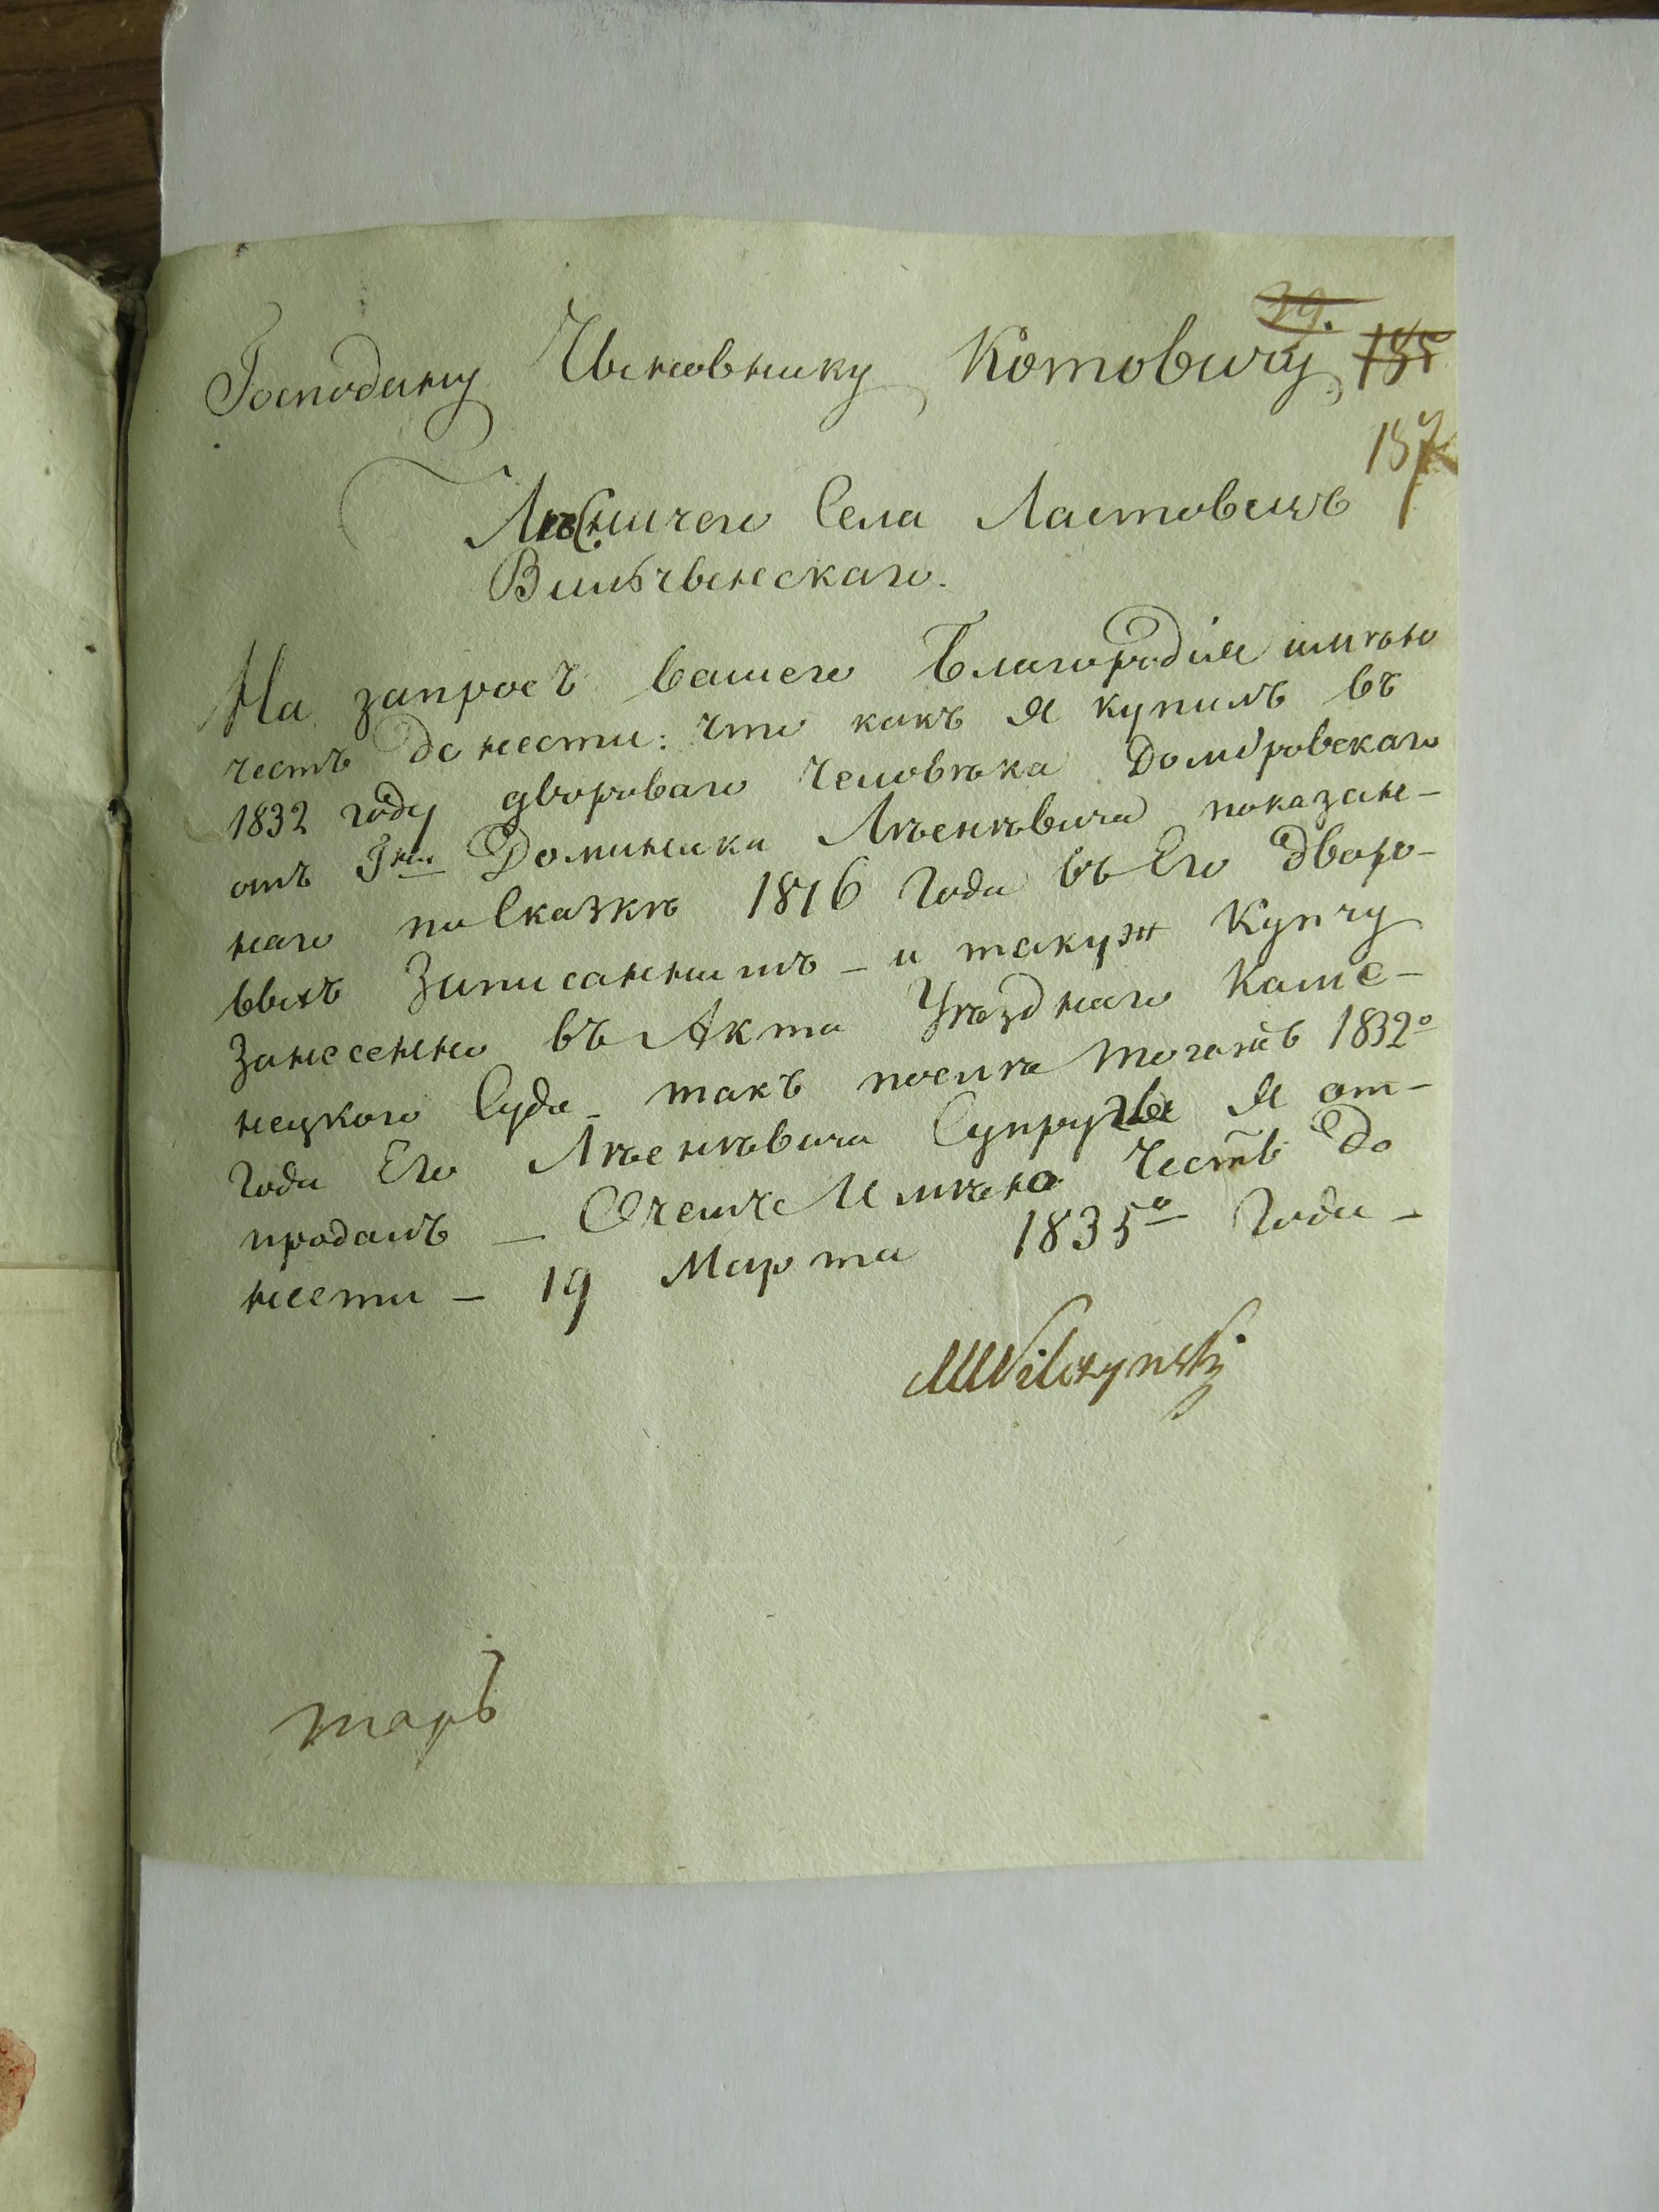 39.
Господину Чиновнику Котовичу 155
157
Лѣсничего Села Ластовецъ
Вильчвинскаго.
На запросъ Вашего Благородія имѣю
честь донести: что какъ я купилъ въ
1832 году двороваго человѣка Домбровскаго
отъ Гна Доминика Лѣсневича показан-
наго по Сказкѣ 1816 года въ Его Дворо-
выхъ Записаннимъ – и такуж Купчу
Занесенно въ Акта Уѣзднаго Каме-
нецкого Суда – такъ после Тогажъ 1832о
года Его Лѣсневича Супругѣ Я от-
продалъ – О чемъ Имѣю Честь до
нести – 19 Марта 1835о Года –
MWilczynski